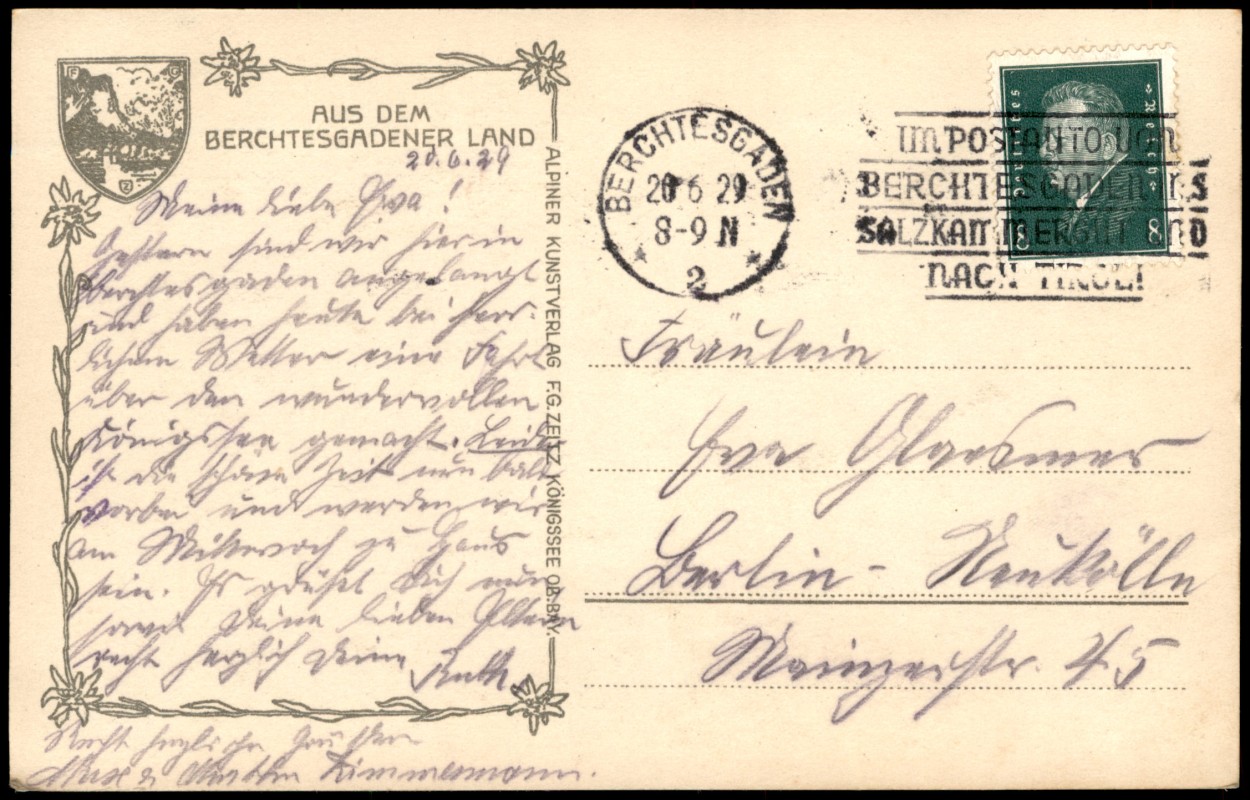 F G
Z
AUS DEM
BERCHTESGADENER LAND
20.6.29
Meine liebe Eva!
Gestern sind wir hier in
Berchtesgaden angelangt
und haben heute bei herr-
lichem Wetter eine Fahrt
über den wundervollen
Königssee gemacht. Leider
ist die schöne Zeit nun bald
vorbei und werden wir
am Mittwoch zu Haus
sein. Es grüßt Dich nun
sowie Deine lieben Eltern
recht herzlich Deine Ruth
Recht herzliche Grüße
Max & Zimmermann.
ALPINER KUNSTVERLAG F.G. ZEITZ KÖNIGSSEE OB. BAY.
BERCHTESGADEN
20 6 29
8-9 N
2
IM POSTAUTO VON
BERCHTESGADEN INS
SALZKAMMERGUT UND
NACH TIROL!
Deutsches Reich
8 8
Fräulein
Eva Glaesmer
Berlin - Neukölln
Mainzerstr. 45